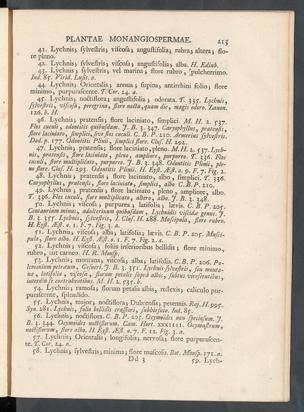 PLANTAE MONANGIOSPERMAE. 215
41. Lychnis, ſylveſtris, viſcoſa, anguſtifolia, rubra; altera; flo-
re pleno.
42. Lychnis, ſylveſtris, viſcoſa, anguſtifolia, alba. H. Edinb.
43. Lychnis, ſylveſtris, vel marina, flore rubro, pulcherrimo.
Ind. 85. Virid. Luſit. a.
44. Lychnis, Orientalis, annua, ſupina, antirrhini folio; flore
minimo, purpuraſcente. T. Cor. 24. a.
45. Lychnis, noctiflora, anguſtifolia, odorata. T. 335. Lychnis,
ſylveſtris, viſcoſa, peregrina, flore noctu, quam die, magis odoro. Zanon.
126. b. H.
46. Lychnis, pratenſis, flore laciniato, ſimplici. M. H. 2. 537.
Flos cuculi, odontitis quibuſdam. J. B. 3. 347. Caryophyllus, pratenſis,
flore laciniato, ſimplici, ſive flos cuculi. C. B. P. 210. Armerius ſylveſtris.
Dod. p. 177. Odontitis Plinii, ſimplici flore. Cluſ. H. 292.
47. Lychnis, pratenſis, flore laciniato, pleno. M. H. 2. 537. Lych-
nis, pratenſis, flore laciniato, pleno, ampliore, purpureo. T. 336. Flos
cuculi, flore multiplicato, purpureo. J. B. 3. 348. Odontitis Plinii, ple-
no flore. Cluſ. H. 293. Odontitis Plinii. H. Eyſt. Æſt. o. 9. F. 7. Fig. 2.
48. Lychnis, pratenſis, flore laciniato, albo, ſimplici. T. 336.
Caryophyllus, pratenſis, flore laciniato, ſimplici, albo C. B. P. 210.
49. Lychnis, pratenſis, flore laciniato, pleno, ampliore, albo.
T. 336. Flos cuculi, flore multiplicato, altero, albo. J. B. 3. 348.
50. Lychnis, viſcoſa, purpurea, latifolia, lævis. C. B. P. 205.
Centaurium minus, adulterinum quibuſdam, Lychnidis viſcidæ genus. J.
B. 3. 355 Lychnis, ſylveſtris, I Cluſ. H. 288. Muſcipula, flore rubro.
H. Eyſt. Æſt. o. 1. F. 7. Fig. 3. a.
51. Lychnis, viſcoſa, alba, latifolia, lævis. C. B. P. 205. Muſci-
pula, flore albo. H. Eyſt. Æſt. o. 1. F. 7. Fig. 2. a.
52. Lychnis, viſcoſa, foliis inferioribus bellidis, flore minimo,
rubro, intus carneo. H. R. Monſp.
53. Lychnis, montana, viſcoſa, alba, latifolia. C. B. P. 206. Po-
lemonium petræum, Geſneri. J. B. 3. 351. Lychnis ſylveſtris, ſeu monta-
na, latifolia, viſcoſa, florum petalis ſupra albis, ſubtus verſicoloribus,
interdiu ſe contrahentibus. M. H. 2. 535. b.
54. Lychnis, ramoſa, florum petalis albis, reflexis, caliculo pur-
puraſcente, ſpicendido.
55. Lychnis, major, noctiflora, Dubrenſis, perennis. Raj. H. 995.
Syn. 281. Lychnis, foliis bellidis craſſiori, ſubhirſuto. Ind. 86.
56. Lychnis, noctiflora. C. B. P. 205. Ocymoides non ſpecioſum. J.
B. 3. 344. Ocymoides noctiflorum. Cam. Hort. XXXIIII. Ocymaſtrum,
noctiflorum, flore albo. H. Eyſt. Æſt. o. 7. F. 12. Fig. 3. a.
57. Lychnis, Orientalis, longifolia, nervoſa, flore purpuraſcen-
te. T. Cor. 24. a.
58. Lychnis, ſylveſtris, minima, flore muſcoſo. Bot. Monſp. 171. a.
Dd 3 59. Lych-